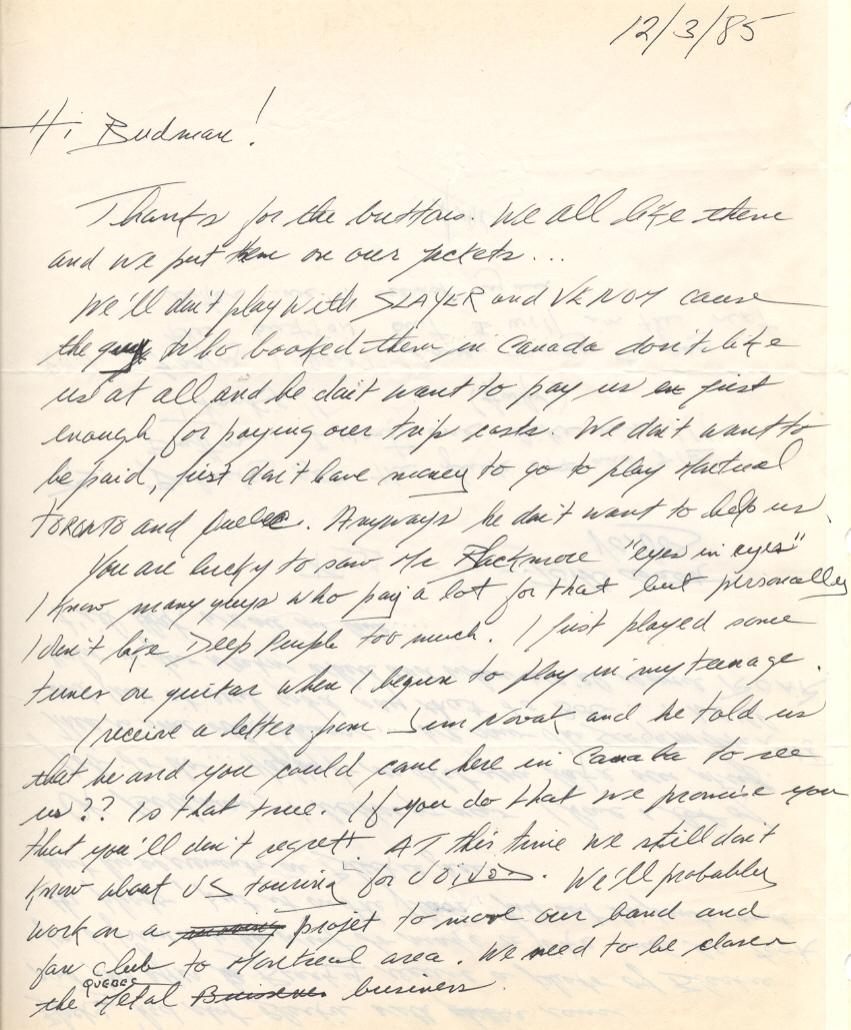 12/3/85
Hi Budman!
Thanks for the buttons. We all like them
and we put them on our jackets...
We'll don't play with SLAYER and VENOM cause
the guy who booked them in Canada don't like
us at all and he don't want to pay us just
enough for paying our trip costs. We don't want to
be paid, just don't have money to go to play Montreal
TORONTO and Quebec. Anyways he don't want to help us.
You are lucky to saw Mr Blackmore "eyes in eyes"
I know many guys who pay a lot for that but personally
I don't like Deep Purple too much. I just played some
tunes on guitar when I begun to play in my teenage.
I receive a letter from Jim Novak and he told us
that he and you could come here in Canada to see
us?? Is that true. If you do that we promise you
that you'll don't regret! AT this time we still don't
know about US touring for VOIVOD. We'll probably
work on a projet to move our band and
fan club to Montreal area. We need to be closer
the QUEBEC Metal business.